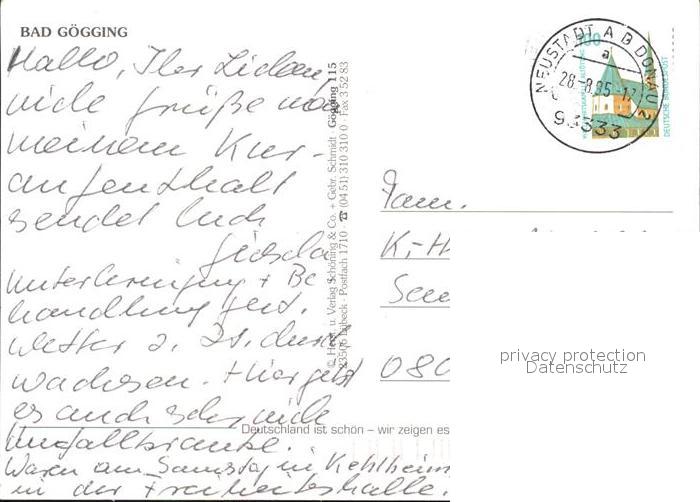 BAD GÖGGING
Hallo, Ihr Lieben,
viele Grüße von
meinem Kur-
aufenthalt
sendet Euch
Gisela
Unterbringung + Be
handlung gut.
Wetter z. Zt. durch
wachsen. Hier gibt
es auch sehr viele
Unfallkranke.
Waren am Samstag in Kehlheim
in der Freiheitshalle.
Deutschland ist schön – wir zeigen es
© Herst. u. Verlag Schöning & Co. + Gebr. Schmidt · Gögging 115
23505 Lübeck · Postfach 1710 · ☎ (04 51) 310 310 0 · Fax 3 52 83
100
DEUTSCHE BUNDESPOST
NEUSTADT A B DONAU 2
a
28.-8.95-17
93333
Fam.
080
privacy protection
Datenschutz